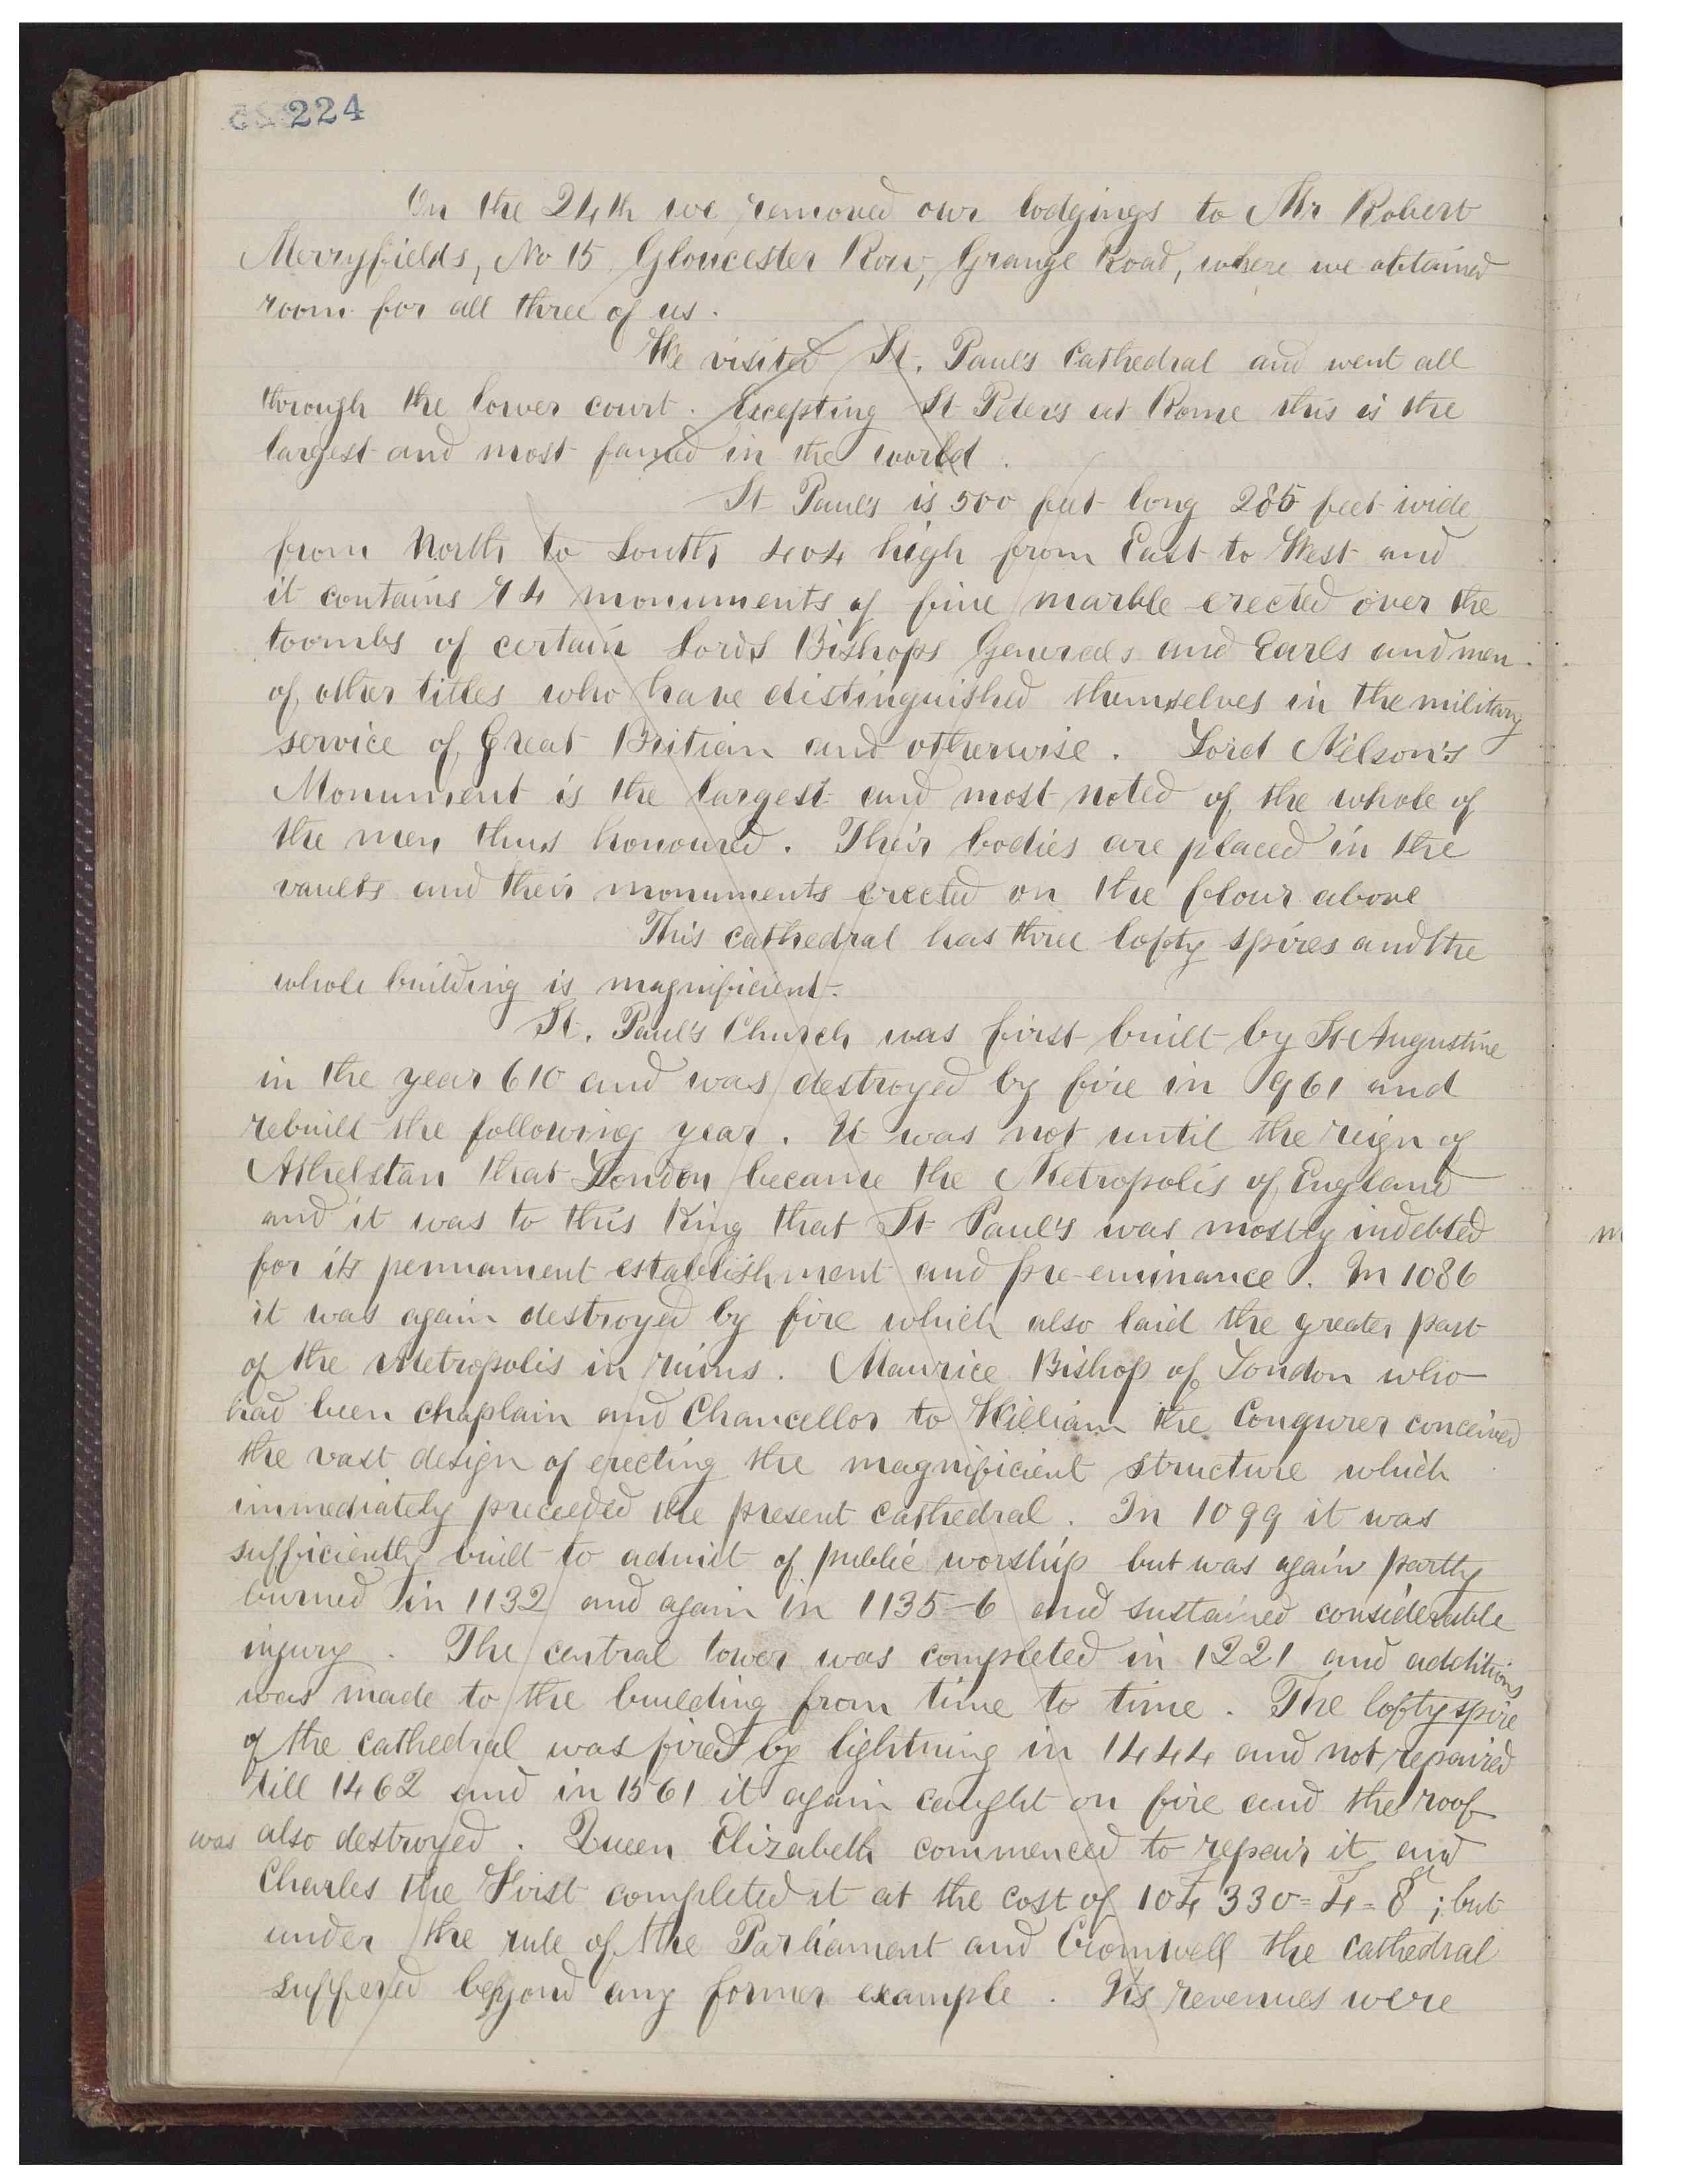 224
On the 24th we removed our lodgings to Mr Robert
Merryfields, No 15 Gloucester Row, Grange Road, where we obtained
room for all three of us.
We visited St. Paul's Cathedral and went all
through the lower court. Excepting St Peters at Rome this is the
largest and most famed in the world.
St Paul's is 500 feet long 285 feet wide
from North to South 404 high from East to West and
it contains 74 monuments of fine marble erected over the
toombs of certain Lords Bishops Generals and Earls and men
of other titles who have distinguished themselves in the military
service of Great Britian and otherwise. Lord Nelson's
Monument is the largest and most noted of the whole of
the men thus honoured. Their bodies are placed in the
vaults and their monuments erected on the flour above
This cathedral has three lofty spires and the
whole building is magnificient.
St. Paul's Church was first built by St Augustine
in the year 610 and was destroyed by fire in 961 and
rebuilt the following year. It was not until the reign of
Athelstan that London became the Metropolis of England
and it was to this King that St Paul's was mostly indebted
for its pennament establishment and pre-eminance. In 1086
it was again destroyed by fire which also laid the greater part
of the Metropolis in ruins. Maurice Bishop of London who
had been chaplain and Chancellor to William the Conqurer conceived
the vast design of erecting the magnificient structure which
immediately preceeded the present cathedral. In 1099 it was
sufficiently built to admit of public worship but was again partly
burned in 1132 and again in 1135-6 and sustained considerable
injury. The central tower was completed in 1221 and additions
was made to the building from time to time. The lofty spire
of the cathedral was fired by lightning in 1444 and not repaired
till 1462 and in 1561 it again caught on fire and the roof
was also destroyed. Queen Elizabeth commenced to repair it and
Charles the First completed it at the cost of 104 330=4=8; but
under the rule of the Parliament and Cromwell the cathedral
suffered beyond any former example. Its revenues were